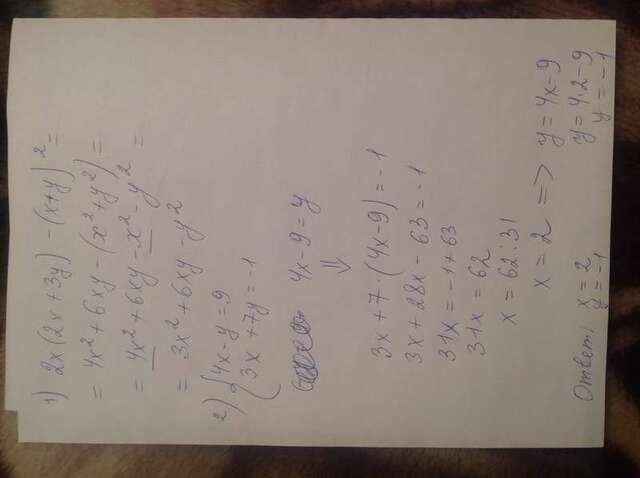 1) 2x(2x+3y) - (x+y)² =
= 4x²+6xy-(x²+y²) =
= 4x²+6xy-x²-y² =
= 3x²+6xy-y²
2) { 4x-y=9
3x+7y=-1
4x-9=y
⇓
3x+7·(4x-9)=-1
3x+28x-63=-1
31x=-1+63
31x=62
x=62:31
x=2 => y=4x-9
y=4·2-9
y=-1
Ответ: x=2
y=-1